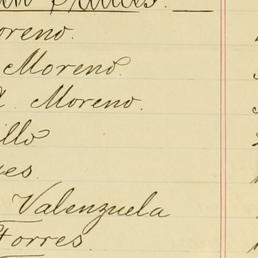 oreno.
Moreno.
Moreno.
llo
es
Valenzuela
Torres.